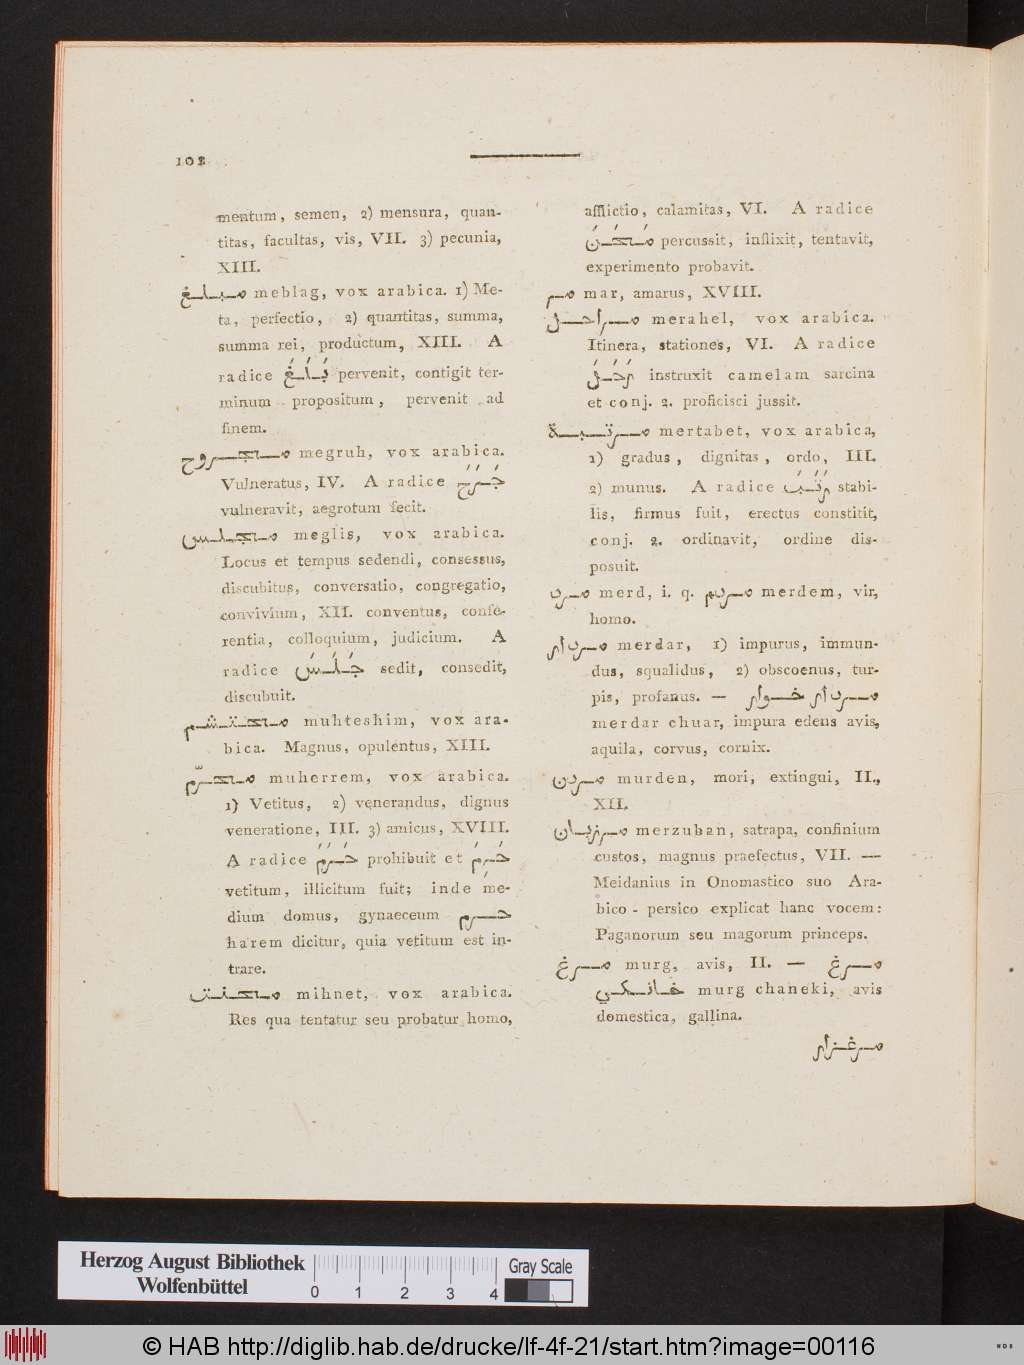 102
mentum, semen, 2) mensura, quan-
titas, facultas, vis, VII. 3) pecunia,
XIII.
مبلغ meblag, vox arabica. 1) Me-
ta, perfectio, 2) quantitas, summa,
summa rei, productum, XIII. A
radice بَلَغَ pervenit, contigit ter-
minum propositum, pervenit ad
finem.
مجروح megruh, vox arabica.
Vulneratus, IV. A radice جَرَحَ
vulneravit, aegrotum fecit.
مجلس meglis, vox arabica.
Locus et tempus sedendi, consessus,
discubitus, conversatio, congregatio,
convivium, XII. conventus, confe-
rentia, colloquium, judicium. A
radice جَلَسَ sedit, consedit,
discubuit.
محتشم muhteshim, vox ara-
bica. Magnus, opulentus, XIII.
محرّم muherrem, vox arabica.
1) Vetitus, 2) venerandus, dignus
veneratione, III. 3) amicus, XVIII.
A radice حَرَمَ prohibuit et حَرِمَ
vetitum, illicitum fuit; inde me-
dium domus, gynaeceum حرم
harem dicitur, quia vetitum est in-
trare.
محنت mihnet, vox arabica.
Res qua tentatur seu probatur homo,
afflictio, calamitas, VI. A radice
مَحَنَ percussit, inflixit, tentavit,
experimento probavit.
مر mar, amarus, XVIII.
مراحل merahel, vox arabica.
Itinera, stationes, VI. A radice
رَحَلَ instruxit camelam sarcina
et conj. 2. proficisci jussit.
مرتبة mertabet, vox arabica,
1) gradus, dignitas, ordo, III.
2) munus. A radice رَتَبَ stabi-
lis, firmus fuit, erectus constitit,
conj. 2. ordinavit, ordine dis-
posuit.
مرد merd, i. q. مردم merdem, vir,
homo.
مردار merdar, 1) impurus, immun-
dus, squalidus, 2) obscoenus, tur-
pis, profanus. — مردار خوار
merdar chuar, impura edens avis,
aquila, corvus, cornix.
مردن murden, mori, extingui, II.,
XII.
مرزبان merzuban, satrapa, confinium
custos, magnus praefectus, VII. —
Meidanius in Onomastico suo Ara-
bico-persico explicat hanc vocem:
Paganorum seu magorum princeps.
مرغ murg, avis, II. — مرغ
خانكي murg chaneki, avis
domestica, gallina.
مرغزار
Herzog August Bibliothek
Wolfenbüttel
0 1 2 3 4
Gray Scale
© HAB http://diglib.hab.de/drucke/lf-4f-21/start.htm?image=00116